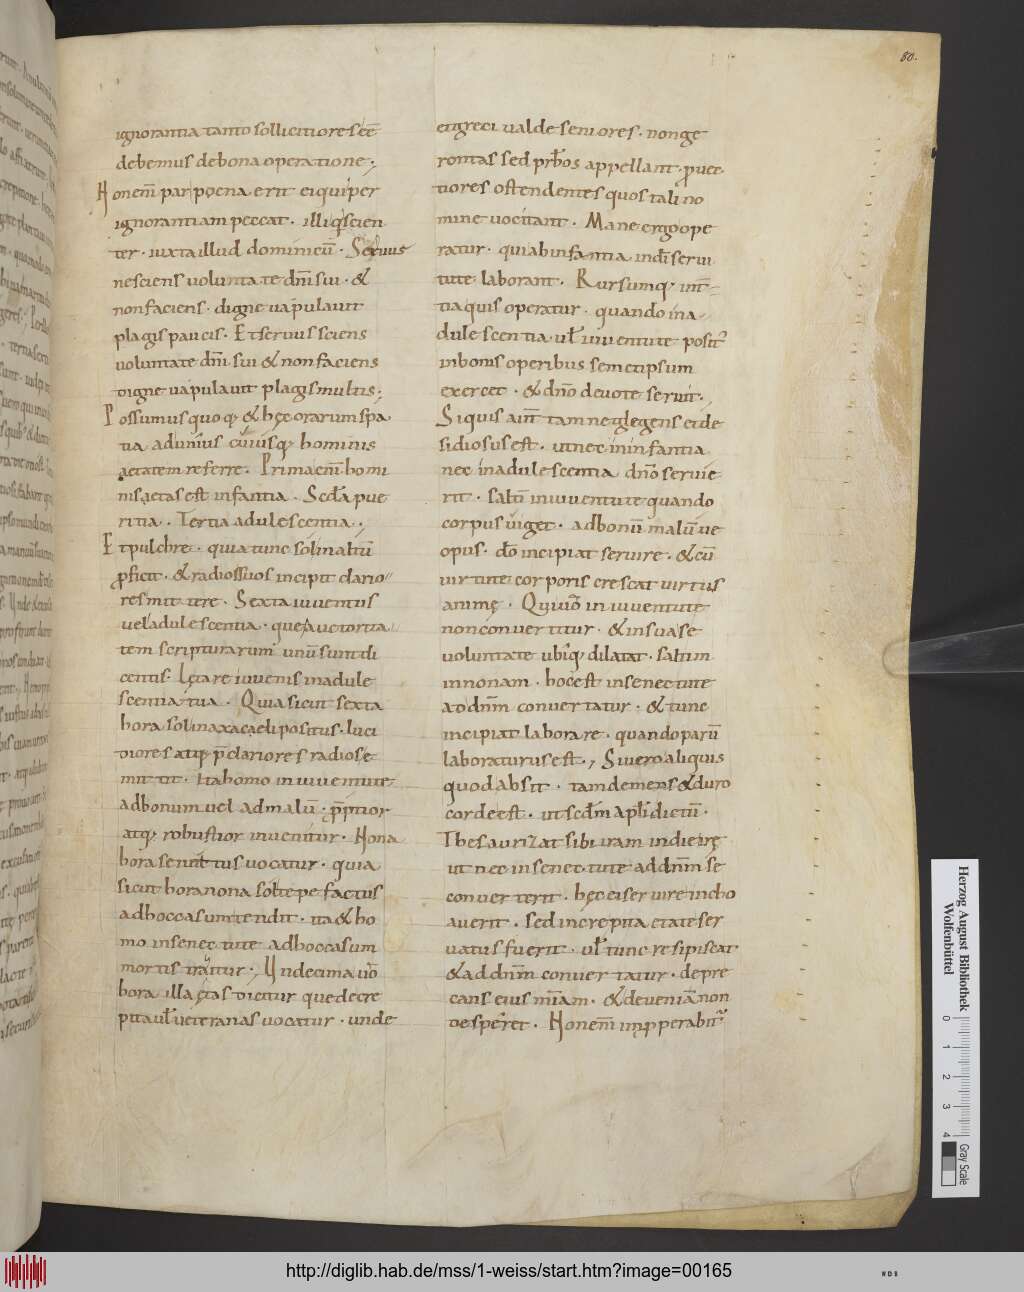 80.
ignorantia tanto sollicitiores eē
debemus de bona operatione ;
Non enī par poena erit ei qui per
ignorantiam peccat · illi q̇ scien
ter · iuxta illud dominicū · Seruus
nesciens voluntate dn̄i sui · &
non faciens · digne uapulauit
plagis paucis · Et seruus sciens
uoluntate dn̄i sui & non faciens
digne uapulauit plagis multis ;
Possumus quoq; & hęc orarum spa
tia ad unius cuiusq; hominis
aetatem referre · Prima enī homi
nis aetas est infantia · Scđa pue
ritia · Tertia adulescentia ·,
Et pulchre · quia tunc sol in altū
ꝓficit · & radios suos incipit clario
res mittere · Sexta iuuentus
uel adulescentia · que auctorita
tem scripturarum unū sunt di
centis · Lętare iuuenis in adule
scentia tua · Quia sicut sexta
hora sol in axa caeli positus · luci
diores atq; p̄clariores radios e
mittit · Ita homo in iuuentute
ad bonum uel ad malū · p̄ptior
atq; robustior inuenitur · Nona
hora senectus uocatur · quia
sicut hora nona sol tepefactus
ad occasum tendit · ita & ho
mo in senectute ad occasum
mortis trahitur ·, Undecima uō
hora illa ętas dicitur que decre
pita ul̄ ueteranas uocatur · unde
et greci ualde seniores · non ge
rontas sed prb̄os appellant · ꝓuec
tiores ostendentes quos tali no
mine uocitant · Mane ergo ope
ratur · qui ab infantia in dī serui
tute · laborant · Rursumq; int̄
tia quis operatur · quando in a
dulescentia ul̄ iuuentute posit᾽
in bonis operibus semetipsum
exercet · & dn̄o deuote seruit ·,
Si quis aut̄ tam neglegens et de
sidiosus est · ut nec in infantia
nec in adulescentia dn̄o seruie
rit · saltī in iuuentute quando
corpus uiget · ad bonū malū ue
opus · dō incipiat seruire · & cū
uirtute corporis crescat uirtus
animę · Qui uō in iuuentute
non conuertitur · & in sua se
uoluntate ubiq; dilatat · saltim
in nonam · hoc est in senectute
ad dn̄m conuertatur · & tunc
incipiat laborare · quando parū
laboraturus est ·, Si uero aliquis
quod absit · tam demens & duro
corde est · ut scđm apl̄i dictū ·
Thesaurizat sibi iram in die irę
ut nec in senectute ad dn̄m se
conuerterit · hęc ei seruire incho
auerit · sed in crepita etate ser
uatus fuerit · ul̄ tunc resipiscat
& ad dn̄m conuertatur · depre
cans eius mīam · & de uenia non
desperet · Non enī imꝓperabit᾽
Herzog August Bibliothek
Wolfenbüttel
0 1 2 3 4
Gray Scale
http://diglib.hab.de/mss/1-weiss/start.htm?image=00165